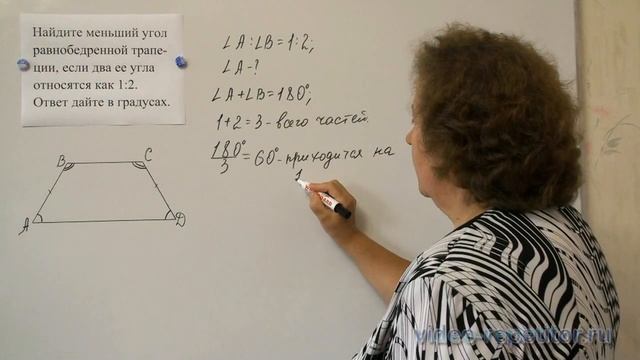 Найдите меньший угол
равнобедренной трапе-
ции, если два ее угла
относятся как 1:2.
Ответ дайте в градусах.
∠A:∠B=1:2;
∠A-?
∠A+∠B=180°;
1+2=3-всего частей.
180°/3=60°-приходится на
1
B
C
A
D
video-repetitor.ru